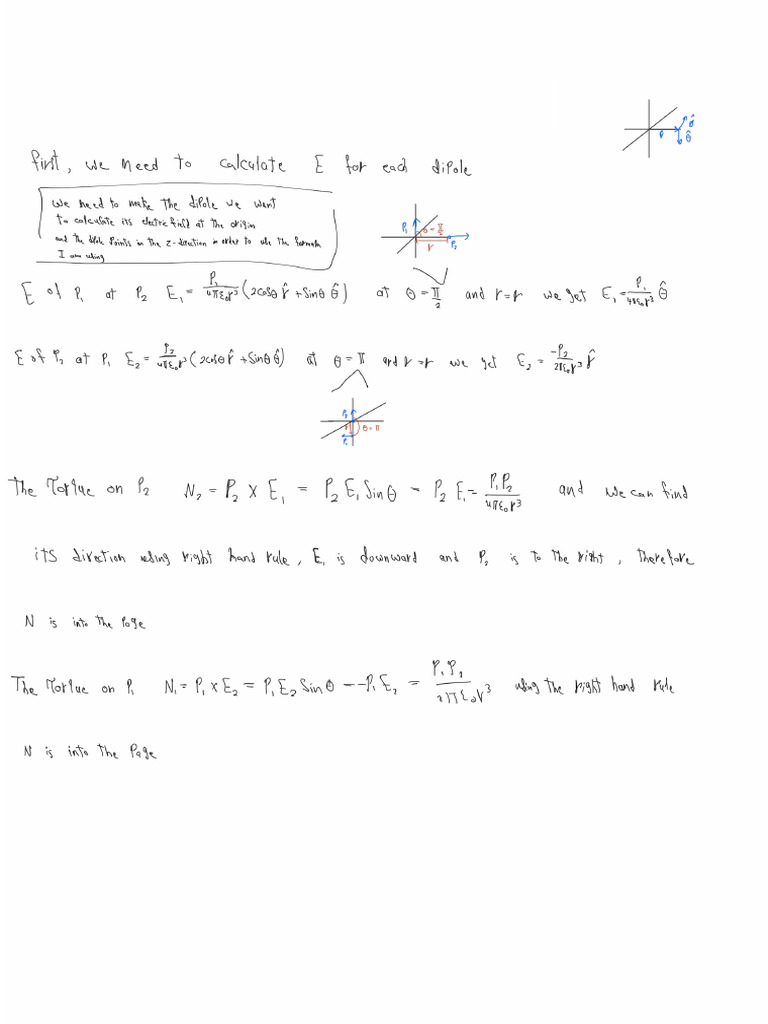 First, we need to calculate E for each dipole
we need to make the dipole we want
to calculate its electric field at the origin
and the dipole points in the z-direction in order to use the formula
I am using
P₁ θ=π/2
r P₂
E of P₁ at P₂ E₁ = P₁/4πε₀r³ (2cosθ r̂ + sinθ θ̂) at θ = π/2 and r=r we get E₁ = P₁/4πε₀r³ θ̂
E of P₂ at P₁ E₂ = P₂/4πε₀r³ (2cosθ r̂ + sinθ θ̂) at θ = π and r=r we get E₂ = -P₂/2πε₀r³ r̂
P₂
r θ=π
P₁
The Torque on P₂ N₂ = P₂ × E₁ = P₂ E₁ sinθ = P₂ E₁ = P₁P₂/4πε₀r³ and we can find
its direction using right hand rule, E₁ is downward and P₂ is to the right, therefore
N is into the page
The Torque on P₁ N₁ = P₁ × E₂ = P₁ E₂ sinθ = -P₁ E₂ = P₁P₂/2πε₀r³ using the right hand rule
N is into the page